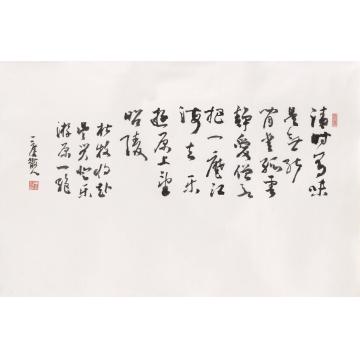 清时有味
是无能
闲爱孤雲
静爱僧欲
把一麾江
海去乐
遊原上望
昭陵
杜牧将赴
吴兴登乐
游原一绝
散人